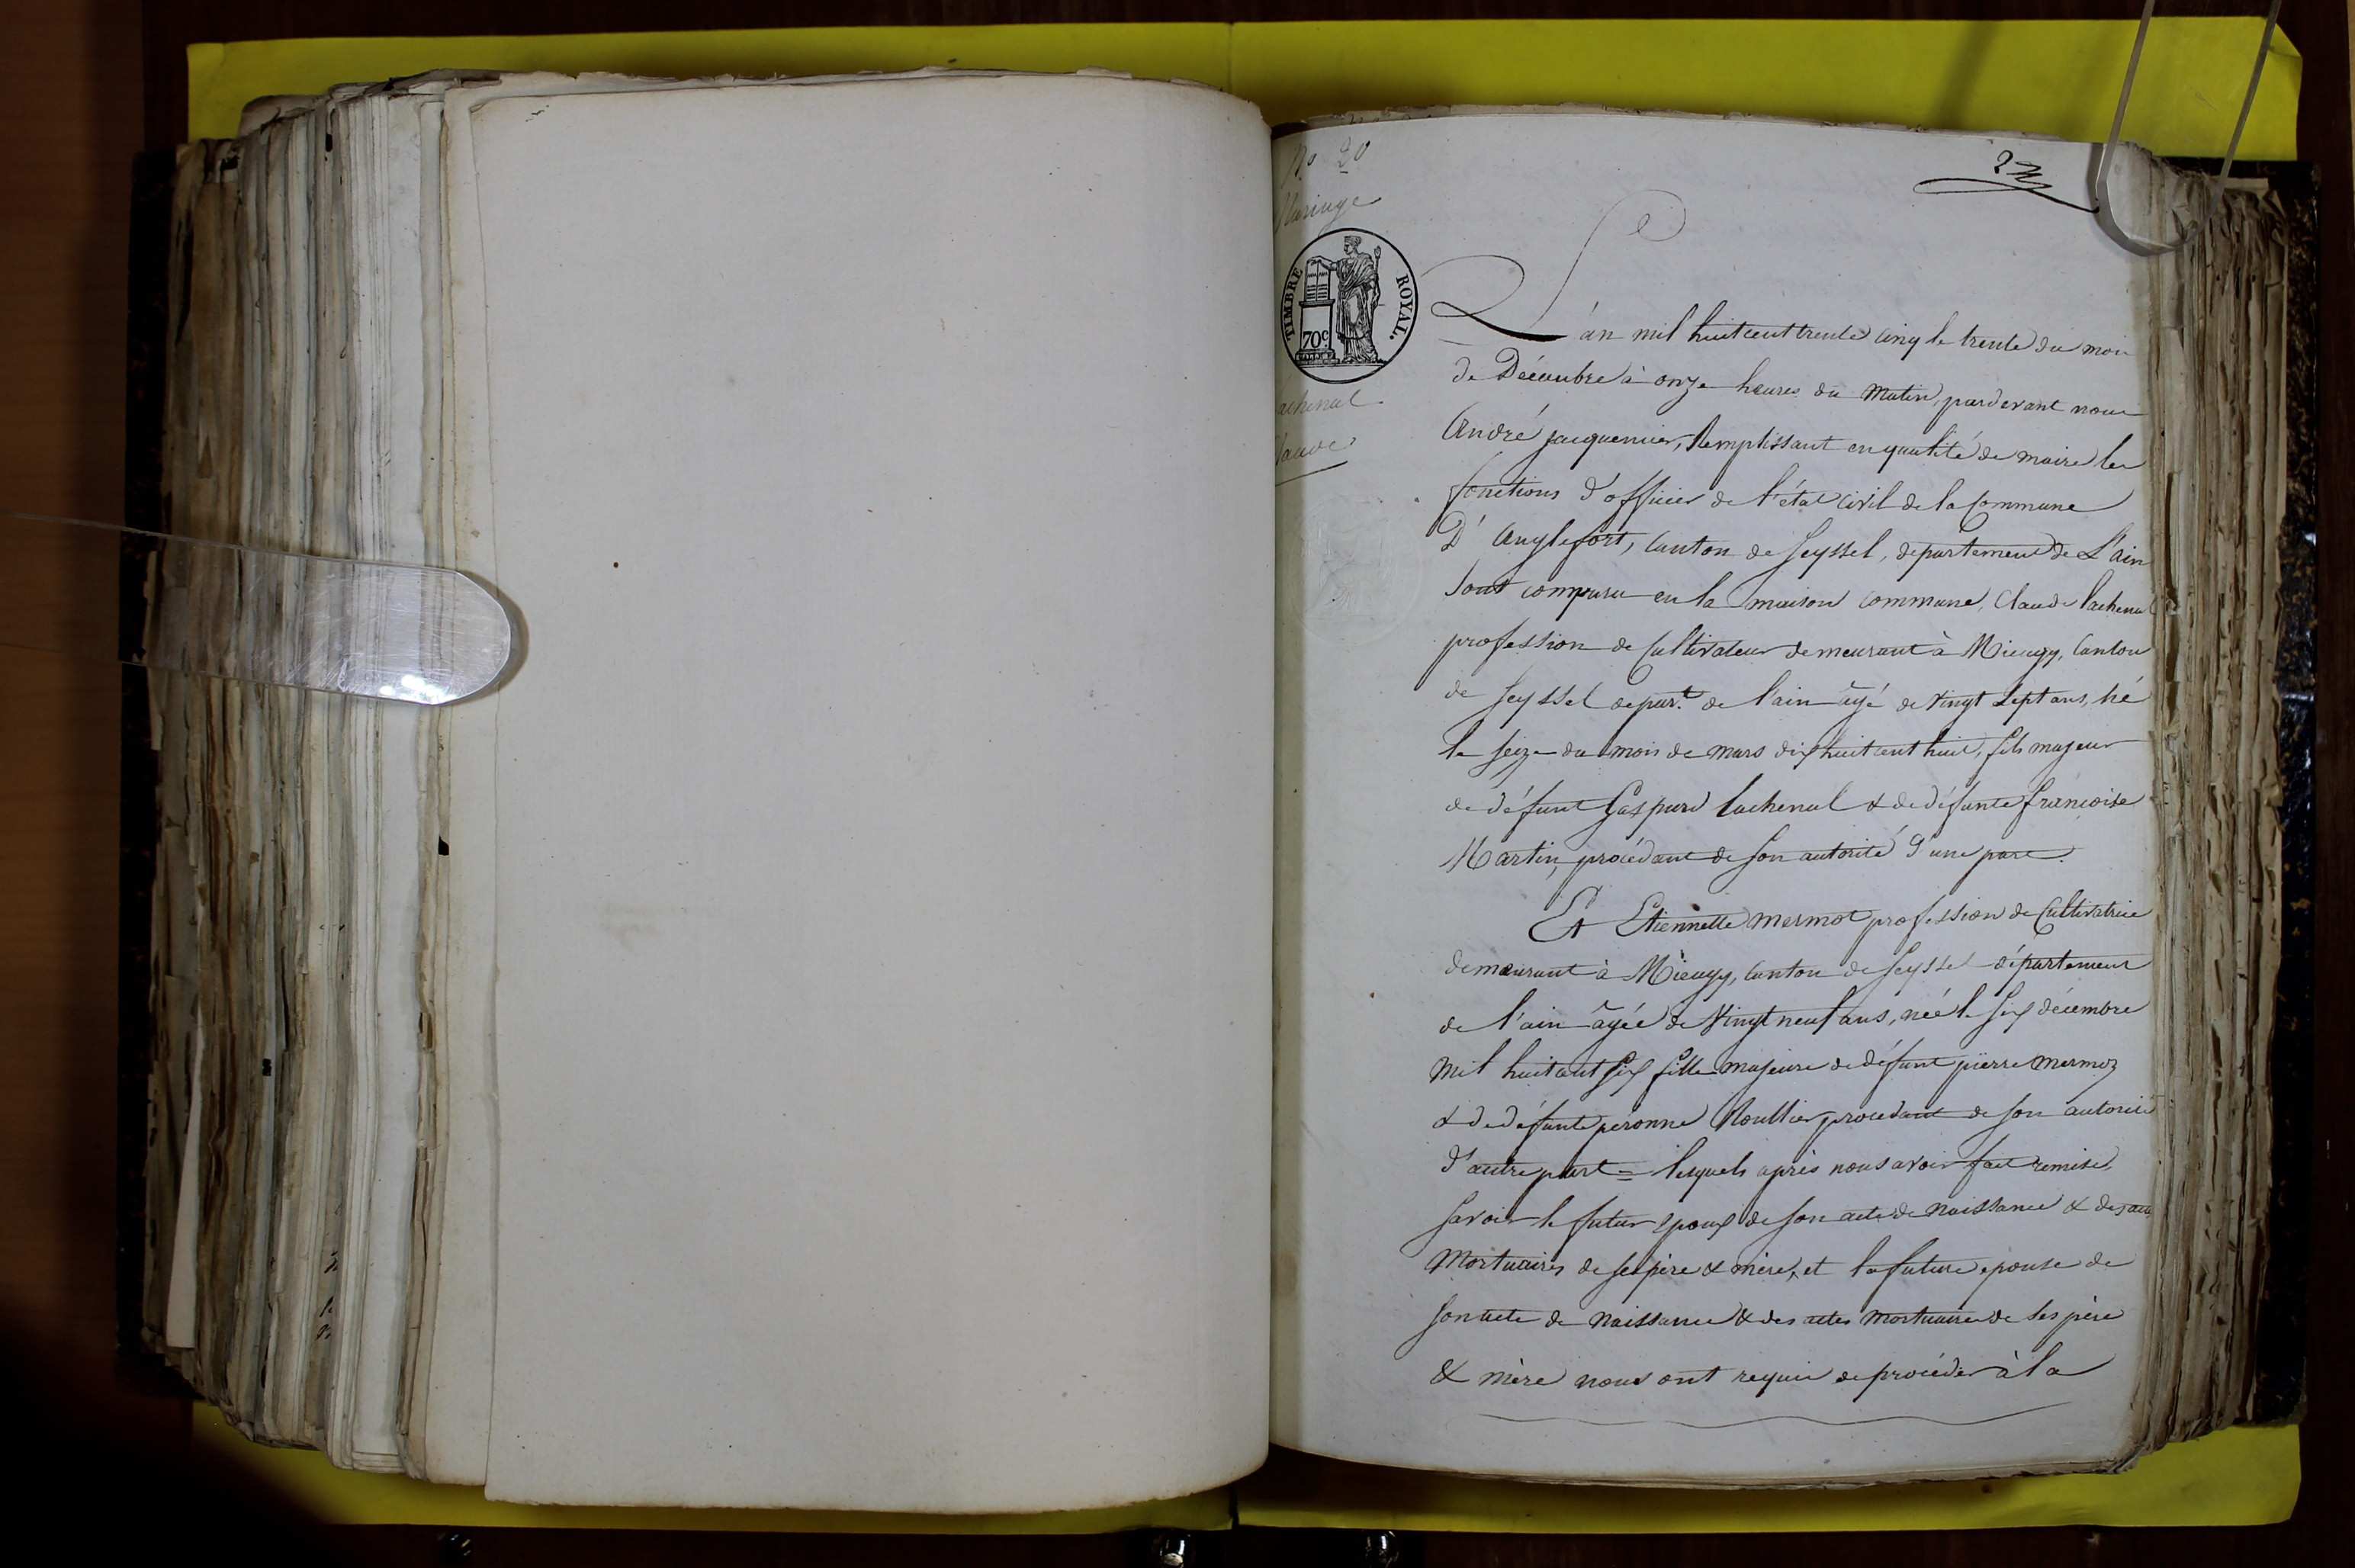 N.o 20
Mariage
23
TIMBRE ROYAL.
70c.
achenal
laude
L'an mil huit cent trente cinq le trente du mois
de Décembre à onze heures du matin, pardevant nous
André jacquemier, Remplissant en qualité de maire les
fonctions d'officier de l'état civil de la Commune
D' Anglefort, Canton de Seyssel, departement de L'ain
Sont comparu en la maison commune, Claude lachenal
profession de Cultivateur demeurant à Mieugy, Canton
de Seyssel depart. de l'ain âgé de vingt Sept ans, né
le seize du mois de mars dix huit cent huit, fils majeur
de défunt Gaspard Lachenal & de défunte françoise
Martin, procédant de son autorité d'une part.
Et Etiennette mermot profession de Cultivatrice
demeurant à Mieugy, Canton de Seyssel département
de l'ain âgée de vingt neuf ans, née le six décembre
mil huit cent six fille majeure de défunt pierre mermoz
& de défunte peronne Roullier procedant de son autorité
d'autre part = lesquels après nous avoir fait remise,
Savoir le futur epoux de son acte de naissance & des
Mortuaires de ses père & mère, et la future epouse de
son acte de naissance & des actes mortuaires de ses père
& mère nous ont requis de procéder à la